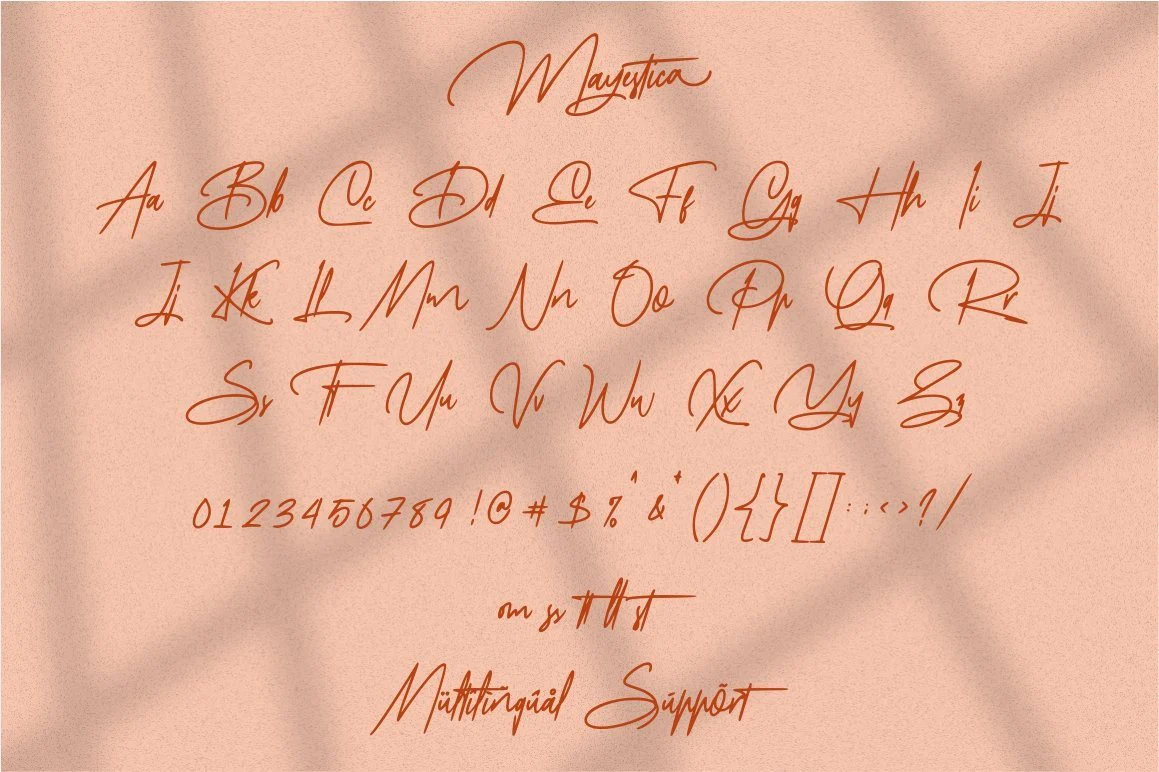 Mayestica
Aa Bb Cc Dd Ee Ff Gg Hh Ii Jj
Jj Kk Ll Mm Nn Oo Pp Qq Rr
Ss Tt Uu Vv Ww Xx Yy Zz
0123456789!@#$%^&*(){}[]:;<>?/
om ss tt lt st
Mültilingúål Súppõrt